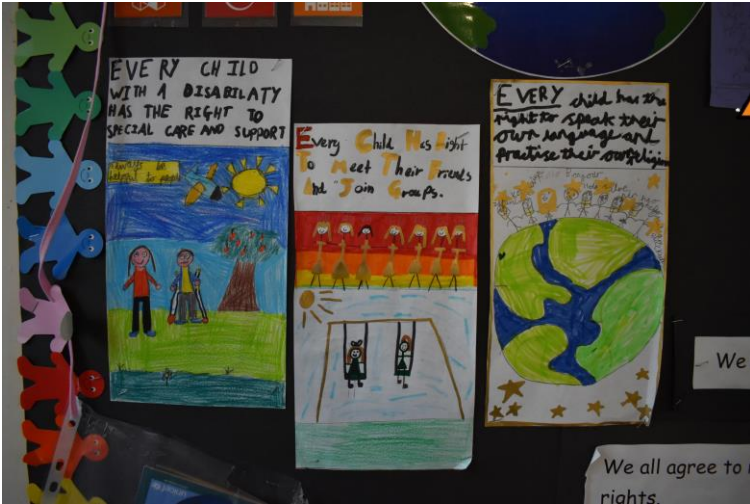 EVERY CHILD
WITH A DISABILATY
HAS THE RIGHT TO
SPECIAL CARE AND SUPPORT
Always be
helpfull to people
Every Child Has Right
To Meet Their Friends
And Join Groups.
EVERY child has the
right to speak their
own language and
practise their own religion
We
We all agree to
rights.